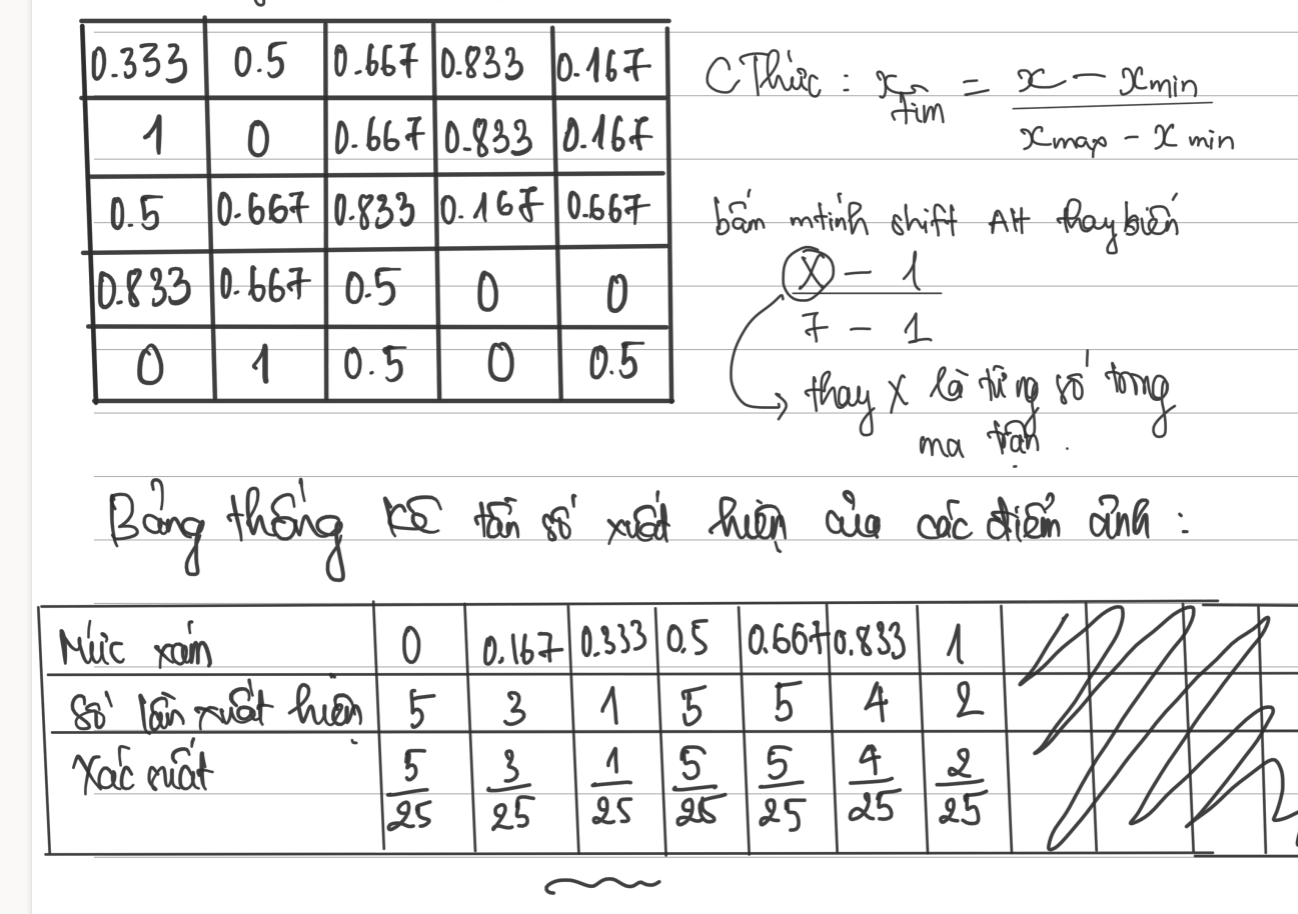 0.333 0.5 0.667 0.833 0.167
1 0 0.667 0.833 0.167
0.5 0.667 0.833 0.167 0.667
0.833 0.667 0.5 0 0
0 1 0.5 0 0.5
CThức : x tìm = x - xmin
xmax - x min
bấm mtính shift Alt thay biến
X - 1
7 - 1
thay X là từng số trong
ma trận .
Bảng thống kê tần số xuất hiện của các điểm ảnh :
Mức xám 0 0.167 0.333 0.5 0.667 0.833 1
Số lần xuất hiện 5 3 1 5 5 4 2
Xác suất 5/25 3/25 1/25 5/25 5/25 4/25 2/25